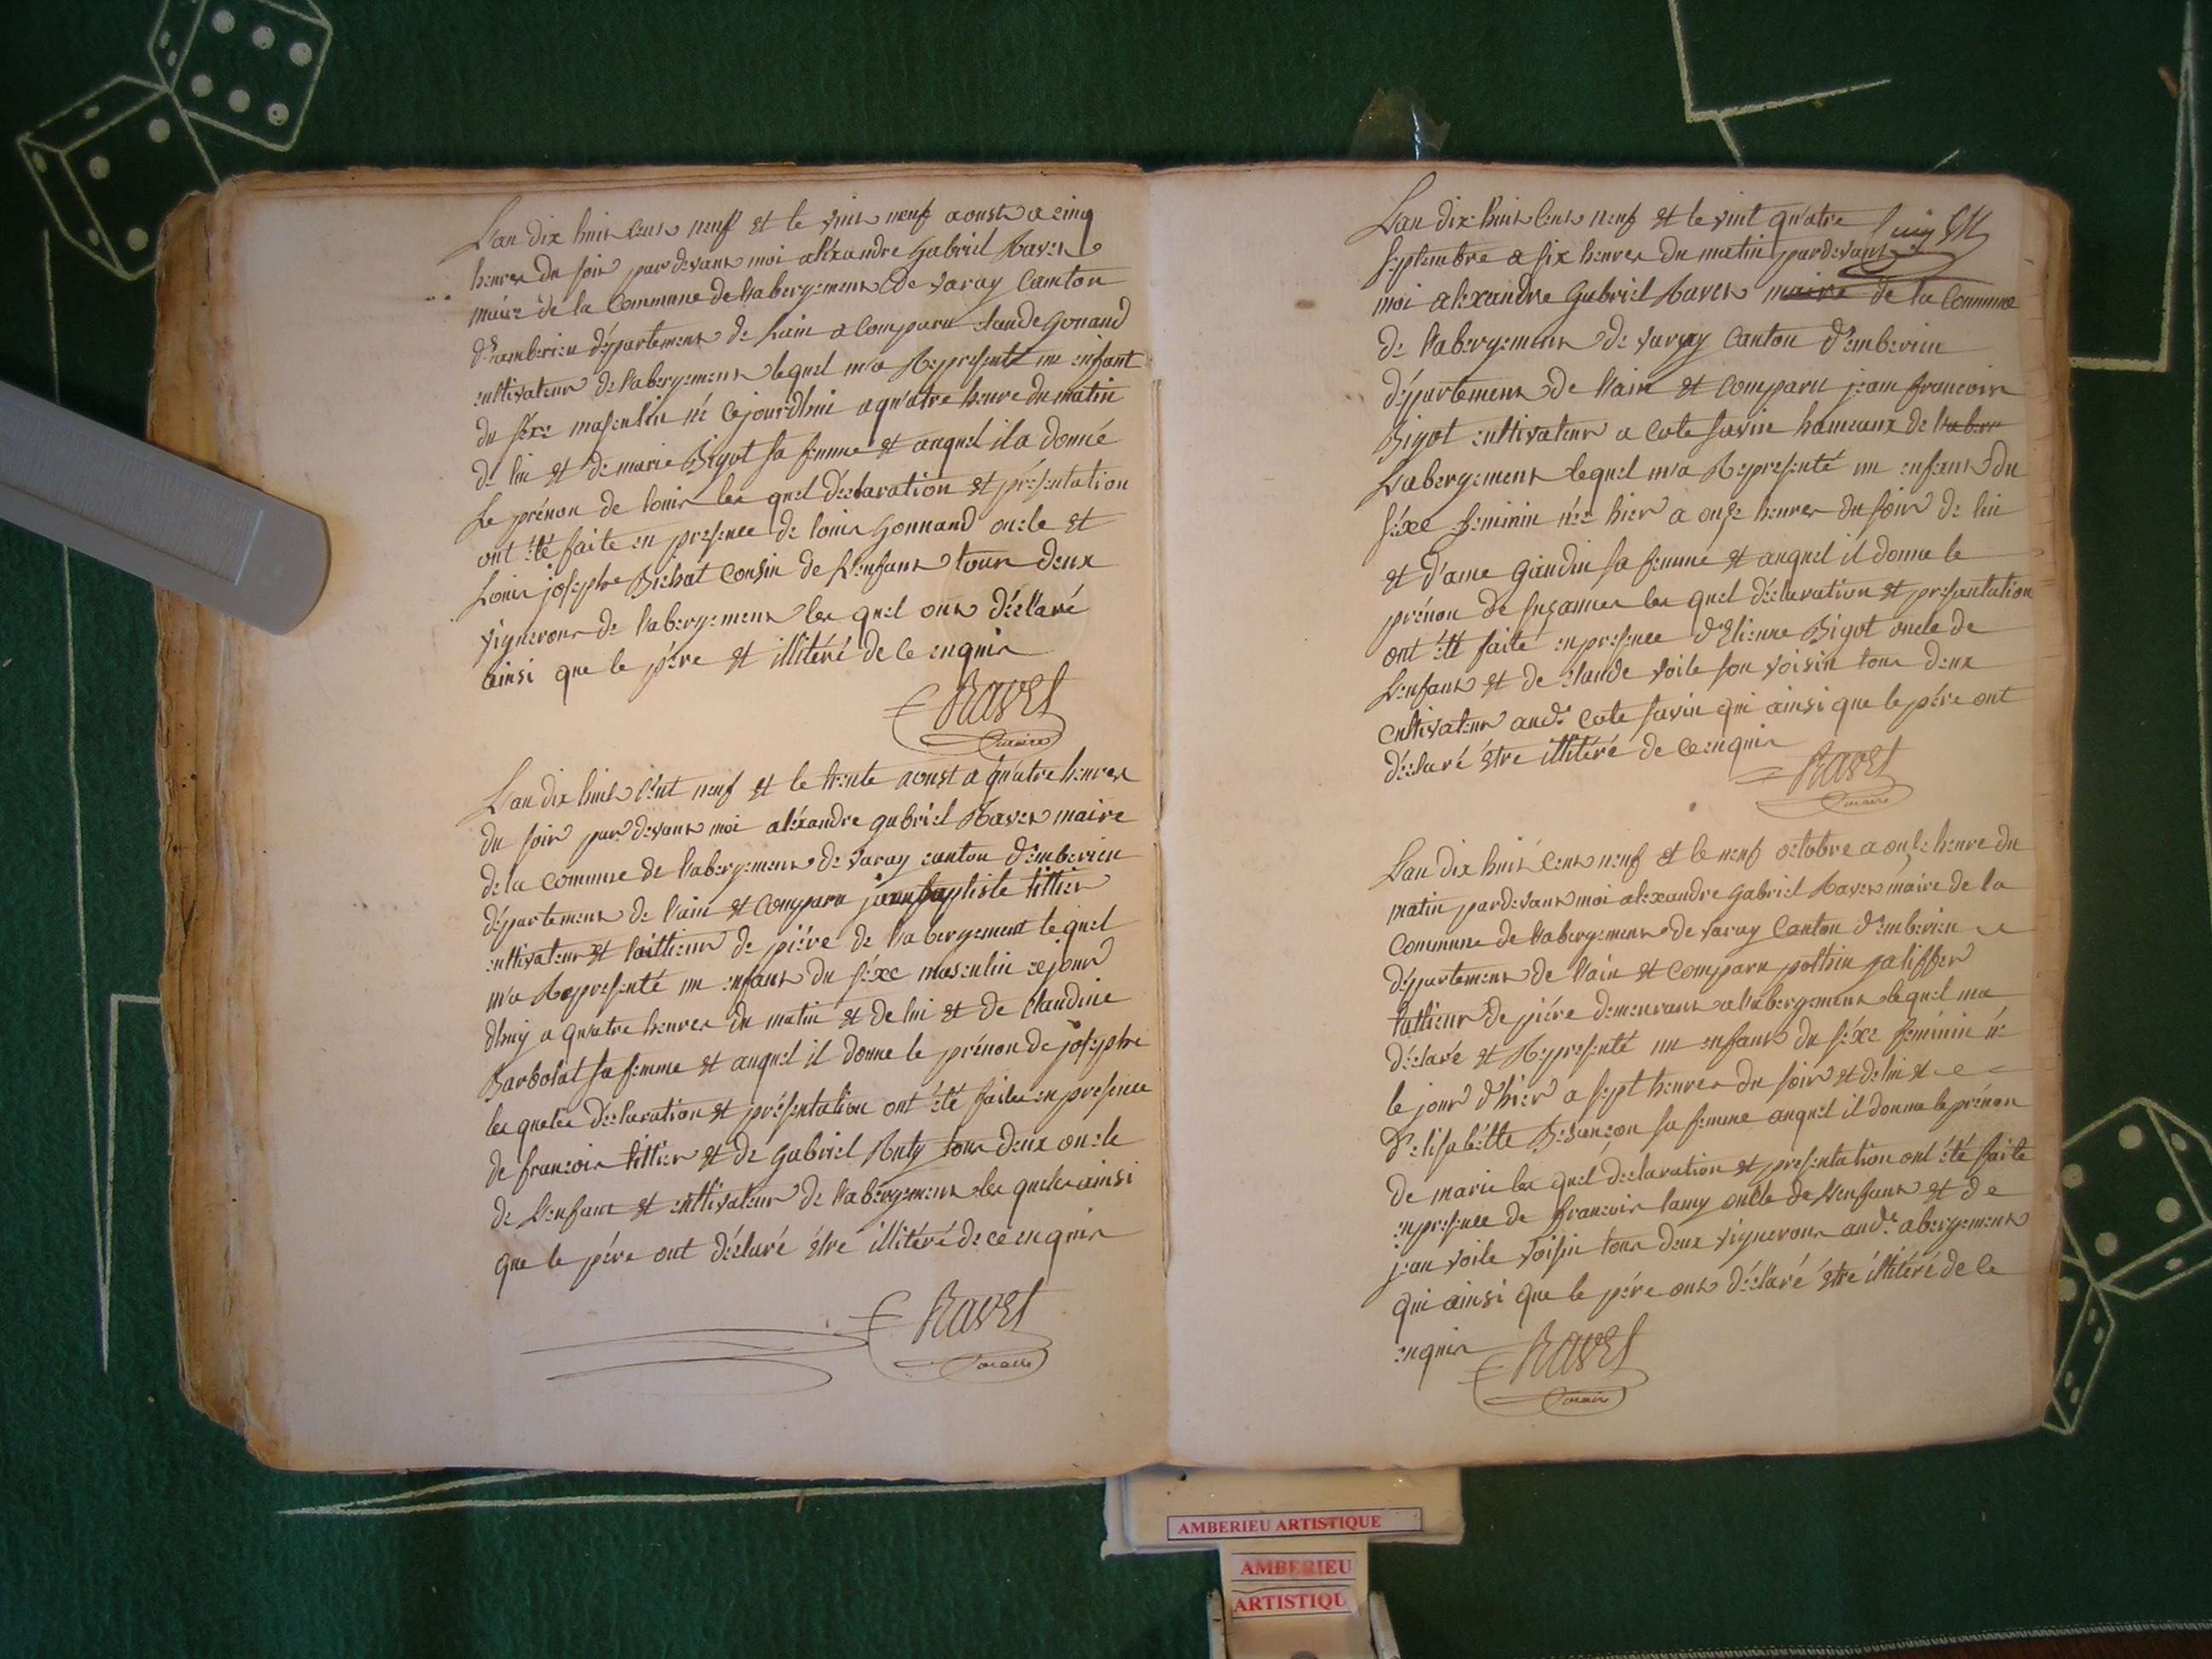 L'an dix huit cent neuf et le vint neuf aoust a cinq
heures du soir pardevant moi aléxandre Gabriel Ravet
maire de la Commune de l'abergement de varay Canton
d'amberieu département de Lain a Comparu Claude Gonand
cultivateur de l'abergement lequel m'a Représenté un enfant
du séxe masculin né cejourdhui a quatre heure du matin
de lui et de marie Bigot sa femme et auquel il a donné
Le prénon de louis les quel déclaration et présentation
ont été faite en presence de louis Gonnand oncle et
Louis josephe Bichat Cousin de L'enfant tous deux
vignerons de l'abergement les quel ont déclaré
ainsi que le pére et illitéré de ce enquis
Ravet
maire
L'an dix huit cent neuf et le trente aoust a quatre heures
du soir par devant moi aléxandre gabriel Ravet maire
de la commune de l'abergement de varay canton d'emberieu
département de l'ain et comparu jean baptiste tillier
cultivateur et tailleur de piére de l'abergement lequel
m'a Représenté un enfant du séxe masculin cejour
dhuy a quatre heures du matin et de lui et de Claudine
Barbolat sa femme et auquel il donne le prénon de josephe
les queles déclaration et présentation ont été faites en presence
de francois tillier et de Gabriel Ruty tous deux oncle
de L'enfant et cultivateur de l'abergement les queles ainsi
que le pére ont déclaré étre illitéré de ce enquis
Ravet
maire
L'an dix huit cent neuf et le vint quatre
septembre a six heures du matin pardevant
moi alexandre Gabriel Ravet maire de la Commune
de l'abergement de varay Canton d'emberieu
département de l'ain et comparu jean francois
Bigot cultivateur a cote savin hameaux de l'aber
Labergement lequel m'a Représenté un enfant du
séxe feminin née hier a onze heures du soir de lui
et d'ame Gaudin sa femme et auquel il donne le
prénon de suzannes les quel déclaration et présantation
ont été faite en presence d'Etienne Bigot oncle de
L'enfant et de claude voile son voisin tous deux
cultivateur aude cote savin qui ainsi que le pére ont
déclaré étre illitéré de ce enquis
Ravet
maire
L'an dix huit cent neuf et le neuf octobre a onze heure du
matin pardevant moi alexandre Gabriel Ravet maire de la
Commune de l'abergement de varay Canton d'emberieu
département de l'ain et comparu pothin jaliffier
tallieur de piére demeurant a l'abergement lequel ma
déclaré et Représenté un enfant du séxe féminin né
le jour d'hier a sept heures du soir et de lui et
d'elisabétte Besançon sa femme auquel il donne le prénon
de marie les quel déclaration et presentation ont été faite
en presence de francois lamy oncle de L'enfant et de
jean voile voisin tous deux vignerons aude abergement
qui ainsi que le pére ont déclaré étre illitéré de ce
enquis
Ravet
maire
AMBERIEU ARTISTIQUE
AMBERIEU
ARTISTIQU